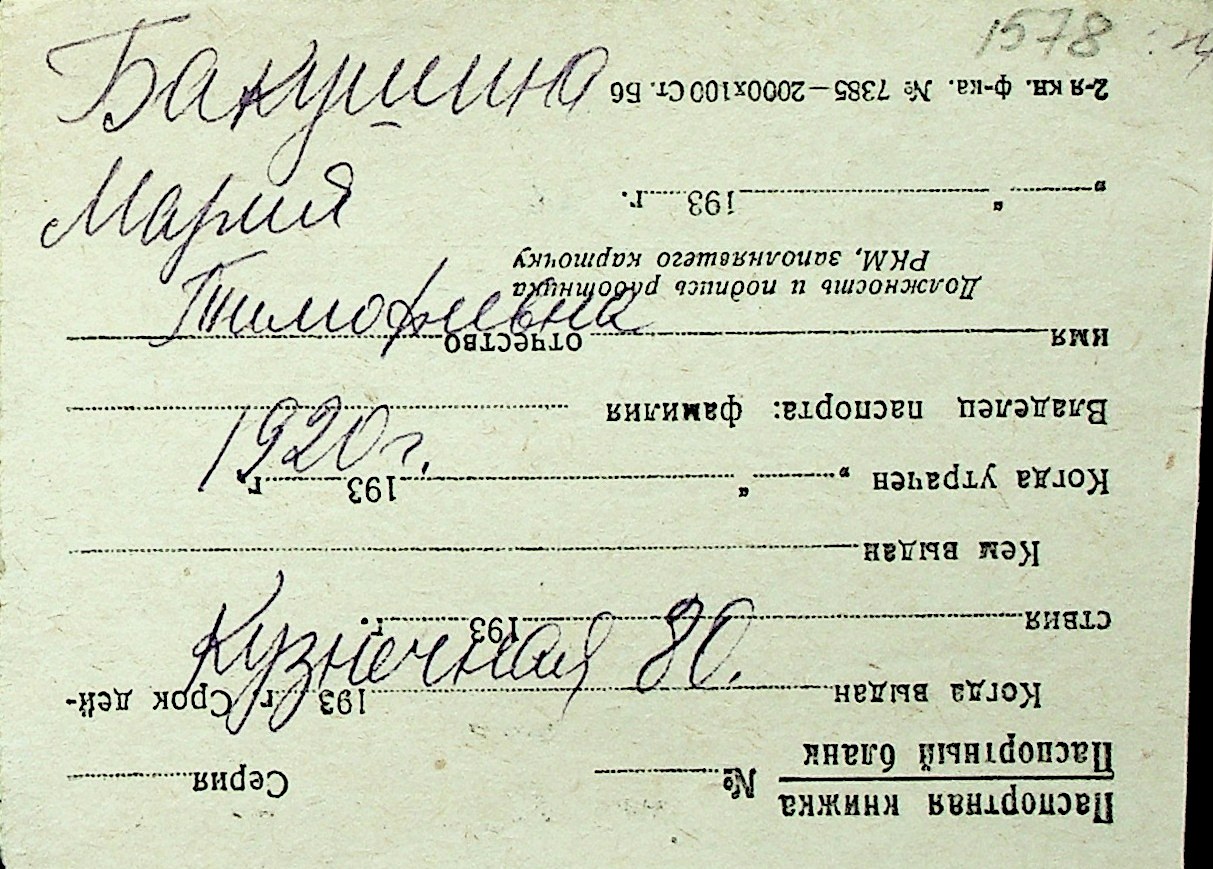 1578
Бакушина
Мария
Тимофиевна
1920 г.
Кузнечная 80.
Паспортная книжка
Паспортный бланк
№ Серия
Когда выдан 193 г. Срок дей-
ствия 193 г.
Кем выдан
Когда утрачен „ “ 193 г.
Владелец паспорта: фамилия
имя отчество
Должность и подпись работника
РКМ, заполнявшего карточку
„ “ 193 г.
2-я кн. ф-ка. № 7385—2000х100 Ст. Б6